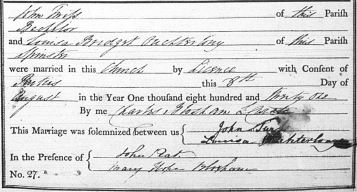 John Tarps of this Parish
Bachelor
and Louisa Bridget Ouchterlony of this Parish
Spinster
were married in this Church by Licence with Consent of
Parties this 8th Day of
August in the Year One thousand eight hundred and thirty One
By me Charles Bloxham
This Marriage was solemnized between us { John
Louisa Ouchterlony
In the Presence of { John Peat
Mary Bloxham
No. 27.